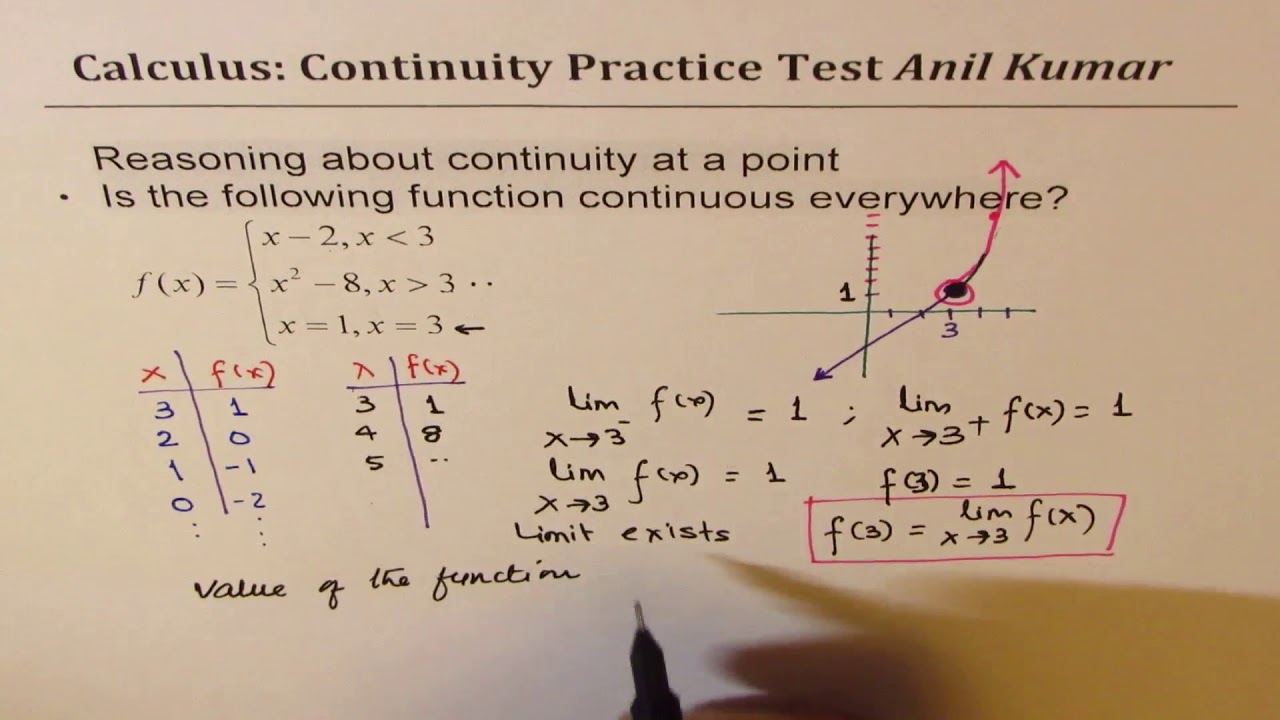 Calculus: Continuity Practice Test Anil Kumar
Reasoning about continuity at a point
· Is the following function continuous everywhere?
f(x) = { x − 2, x < 3
x² − 8, x > 3 ··
x = 1, x = 3 ←
1
3
x | f(x)
3 | 1
2 | 0
1 | −1
0 | −2
⋮ ⋮
x | f(x)
3 | 1
4 | 8
5 | ··
lim x→3⁻ f(x) = 1 ; lim x→3⁺ f(x) = 1
lim x→3 f(x) = 1
f(3) = 1
Limit exists
f(3) = lim x→3 f(x)
Value of the function